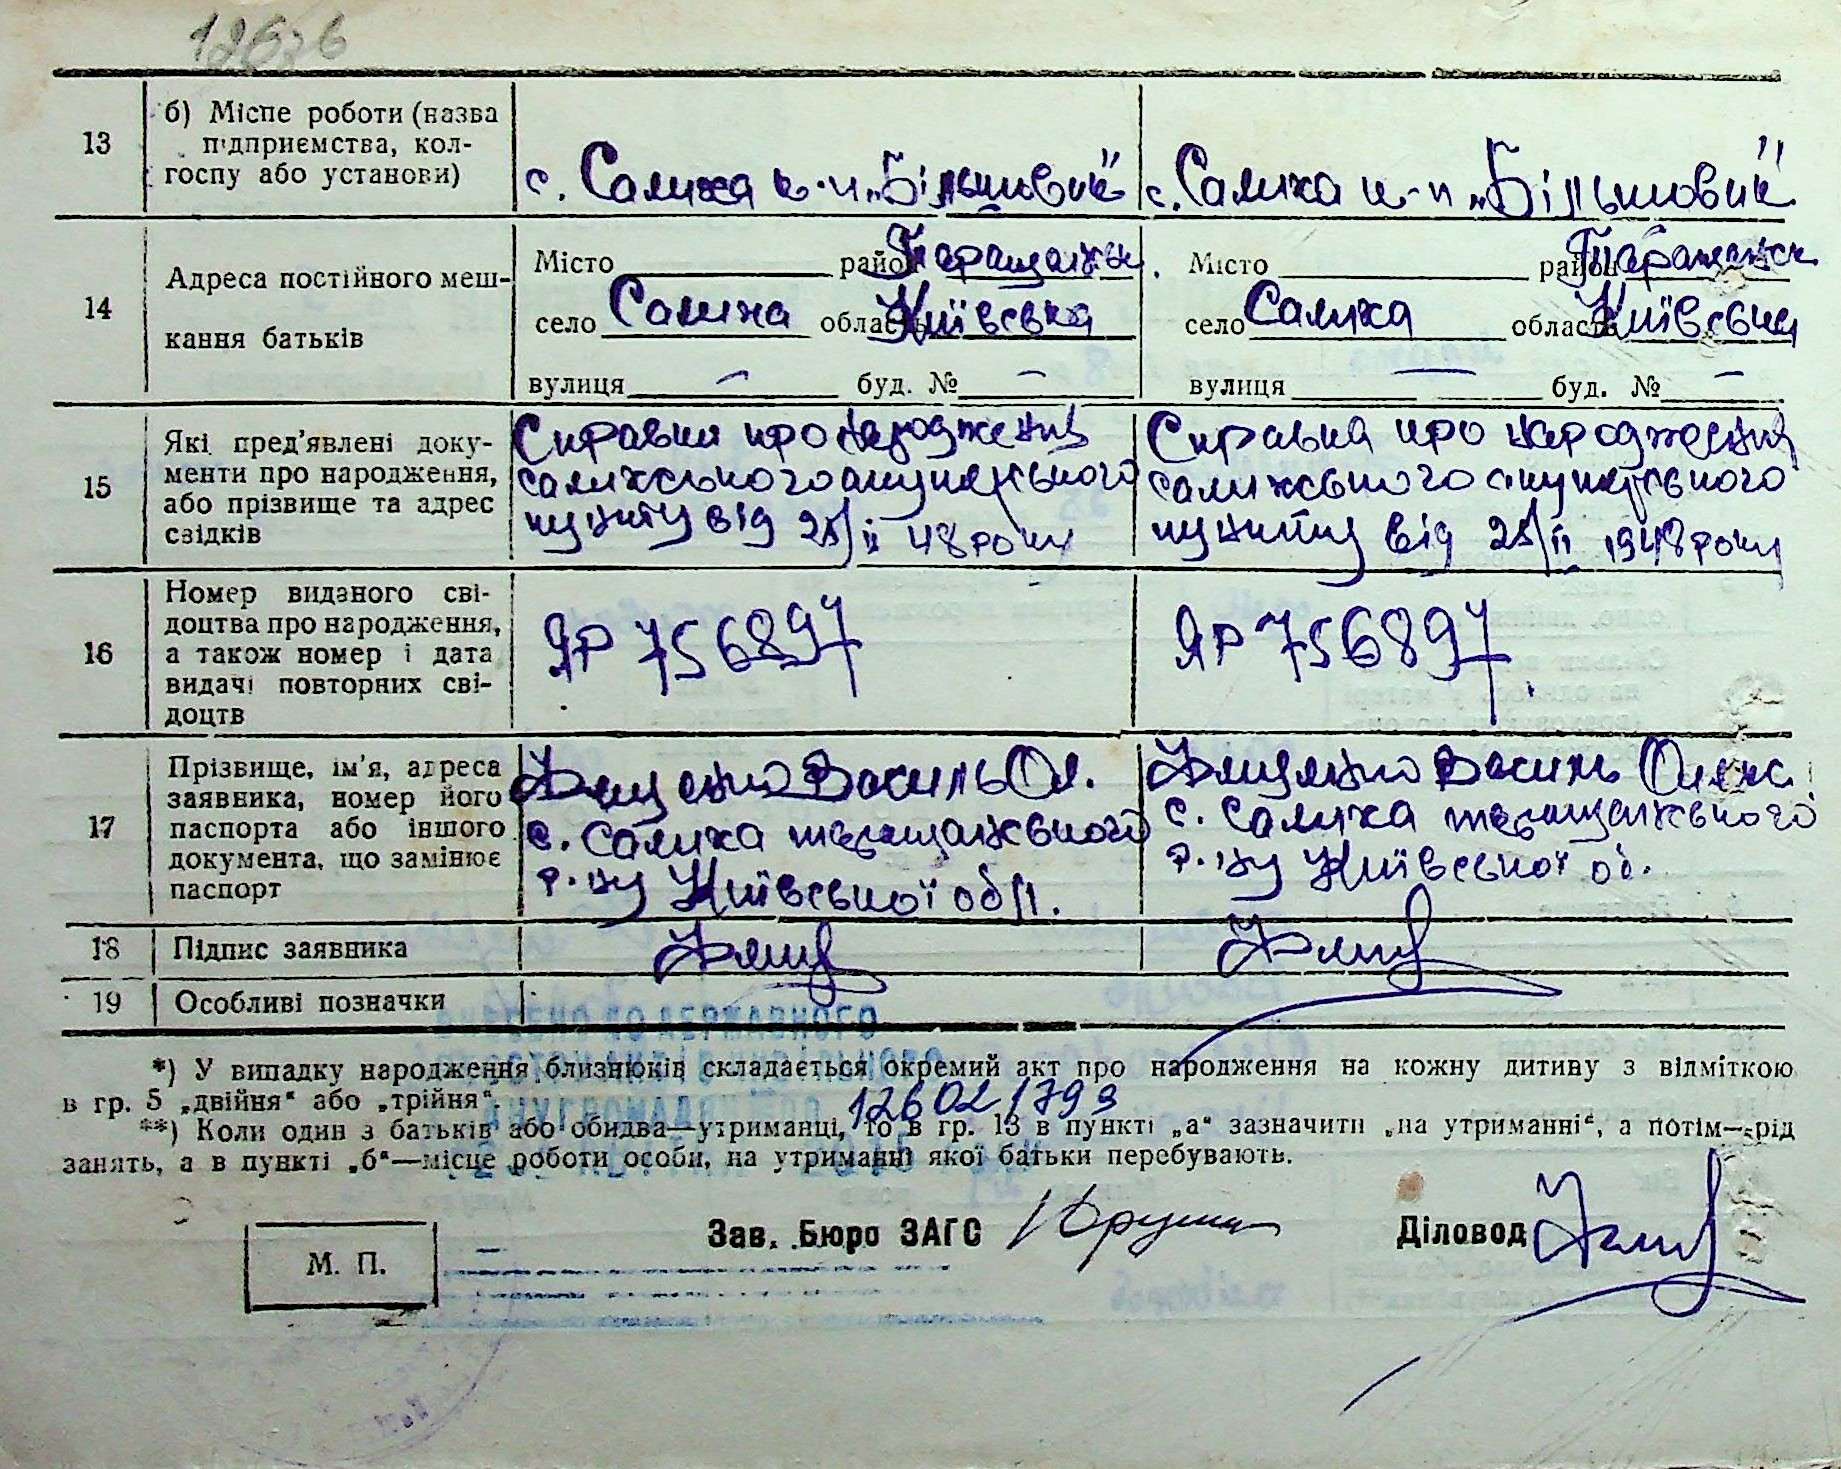 13 б) Місце роботи (назва підприємства, колгоспу або установи)
с. Салиха к-п „Більшовик"
с. Салиха к-п „Більшовик"
14 Адреса постійного мешкання батьків
Місто район Таращанськ.
село Салиха область Київська
вулиця — буд. № —
Місто район Таращанськ
село Салиха область Київська
вулиця — буд. № —
15 Які пред'явлені документи про народження, або прізвище та адрес свідків
Справка про народження
салихського акушерського
пункту від 25/ІІ 48 року
Справка про народження
салихського акушерського
пункту від 25/ІІ 1948 року
16 Номер виданого свідоцтва про народження, а також номер і дата видачі повторних свідоцтв
ЯР 756897
ЯР 756897
17 Прізвище, ім'я, адреса заявника, номер його паспорта або іншого документа, що замінює паспорт
Василь Ол.
с. Салиха таращанського
р-ну Київської обл.
Василь Олекс.
с. Салиха таращанського
р-ну Київської об.
18 Підпис заявника
19 Особливі позначки
ВНЕСЕНО ДО ДЕРЖАВНОГО
*) У випадку народження близнюків складається окремий акт про народження на кожну дитину з відміткою
в гр. 5 „двійня" або „трійня".
126021793
**) Коли один з батьків або обидва—утриманці, то в гр. 13 в пункті „а" зазначити „на утриманні", а потім—рід
занять, а в пункті „б"—місце роботи особи, на утриманні якої батьки перебувають.
М. П.
Зав. Бюро ЗАГС
Діловод